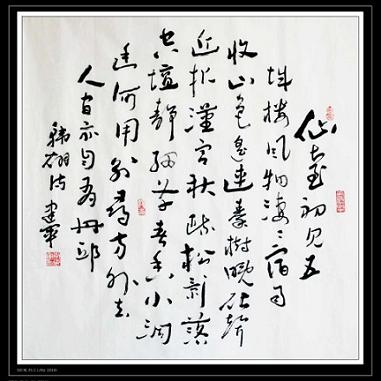 仙臺初见五
城楼风物凄凄宿雨
收山色遥连秦樹晚砧声
近报漢宫秋疏松影落
空壇静细草春香小洞
幽何用别尋方外去
人间亦自有丹邱
韩翃诗 建华